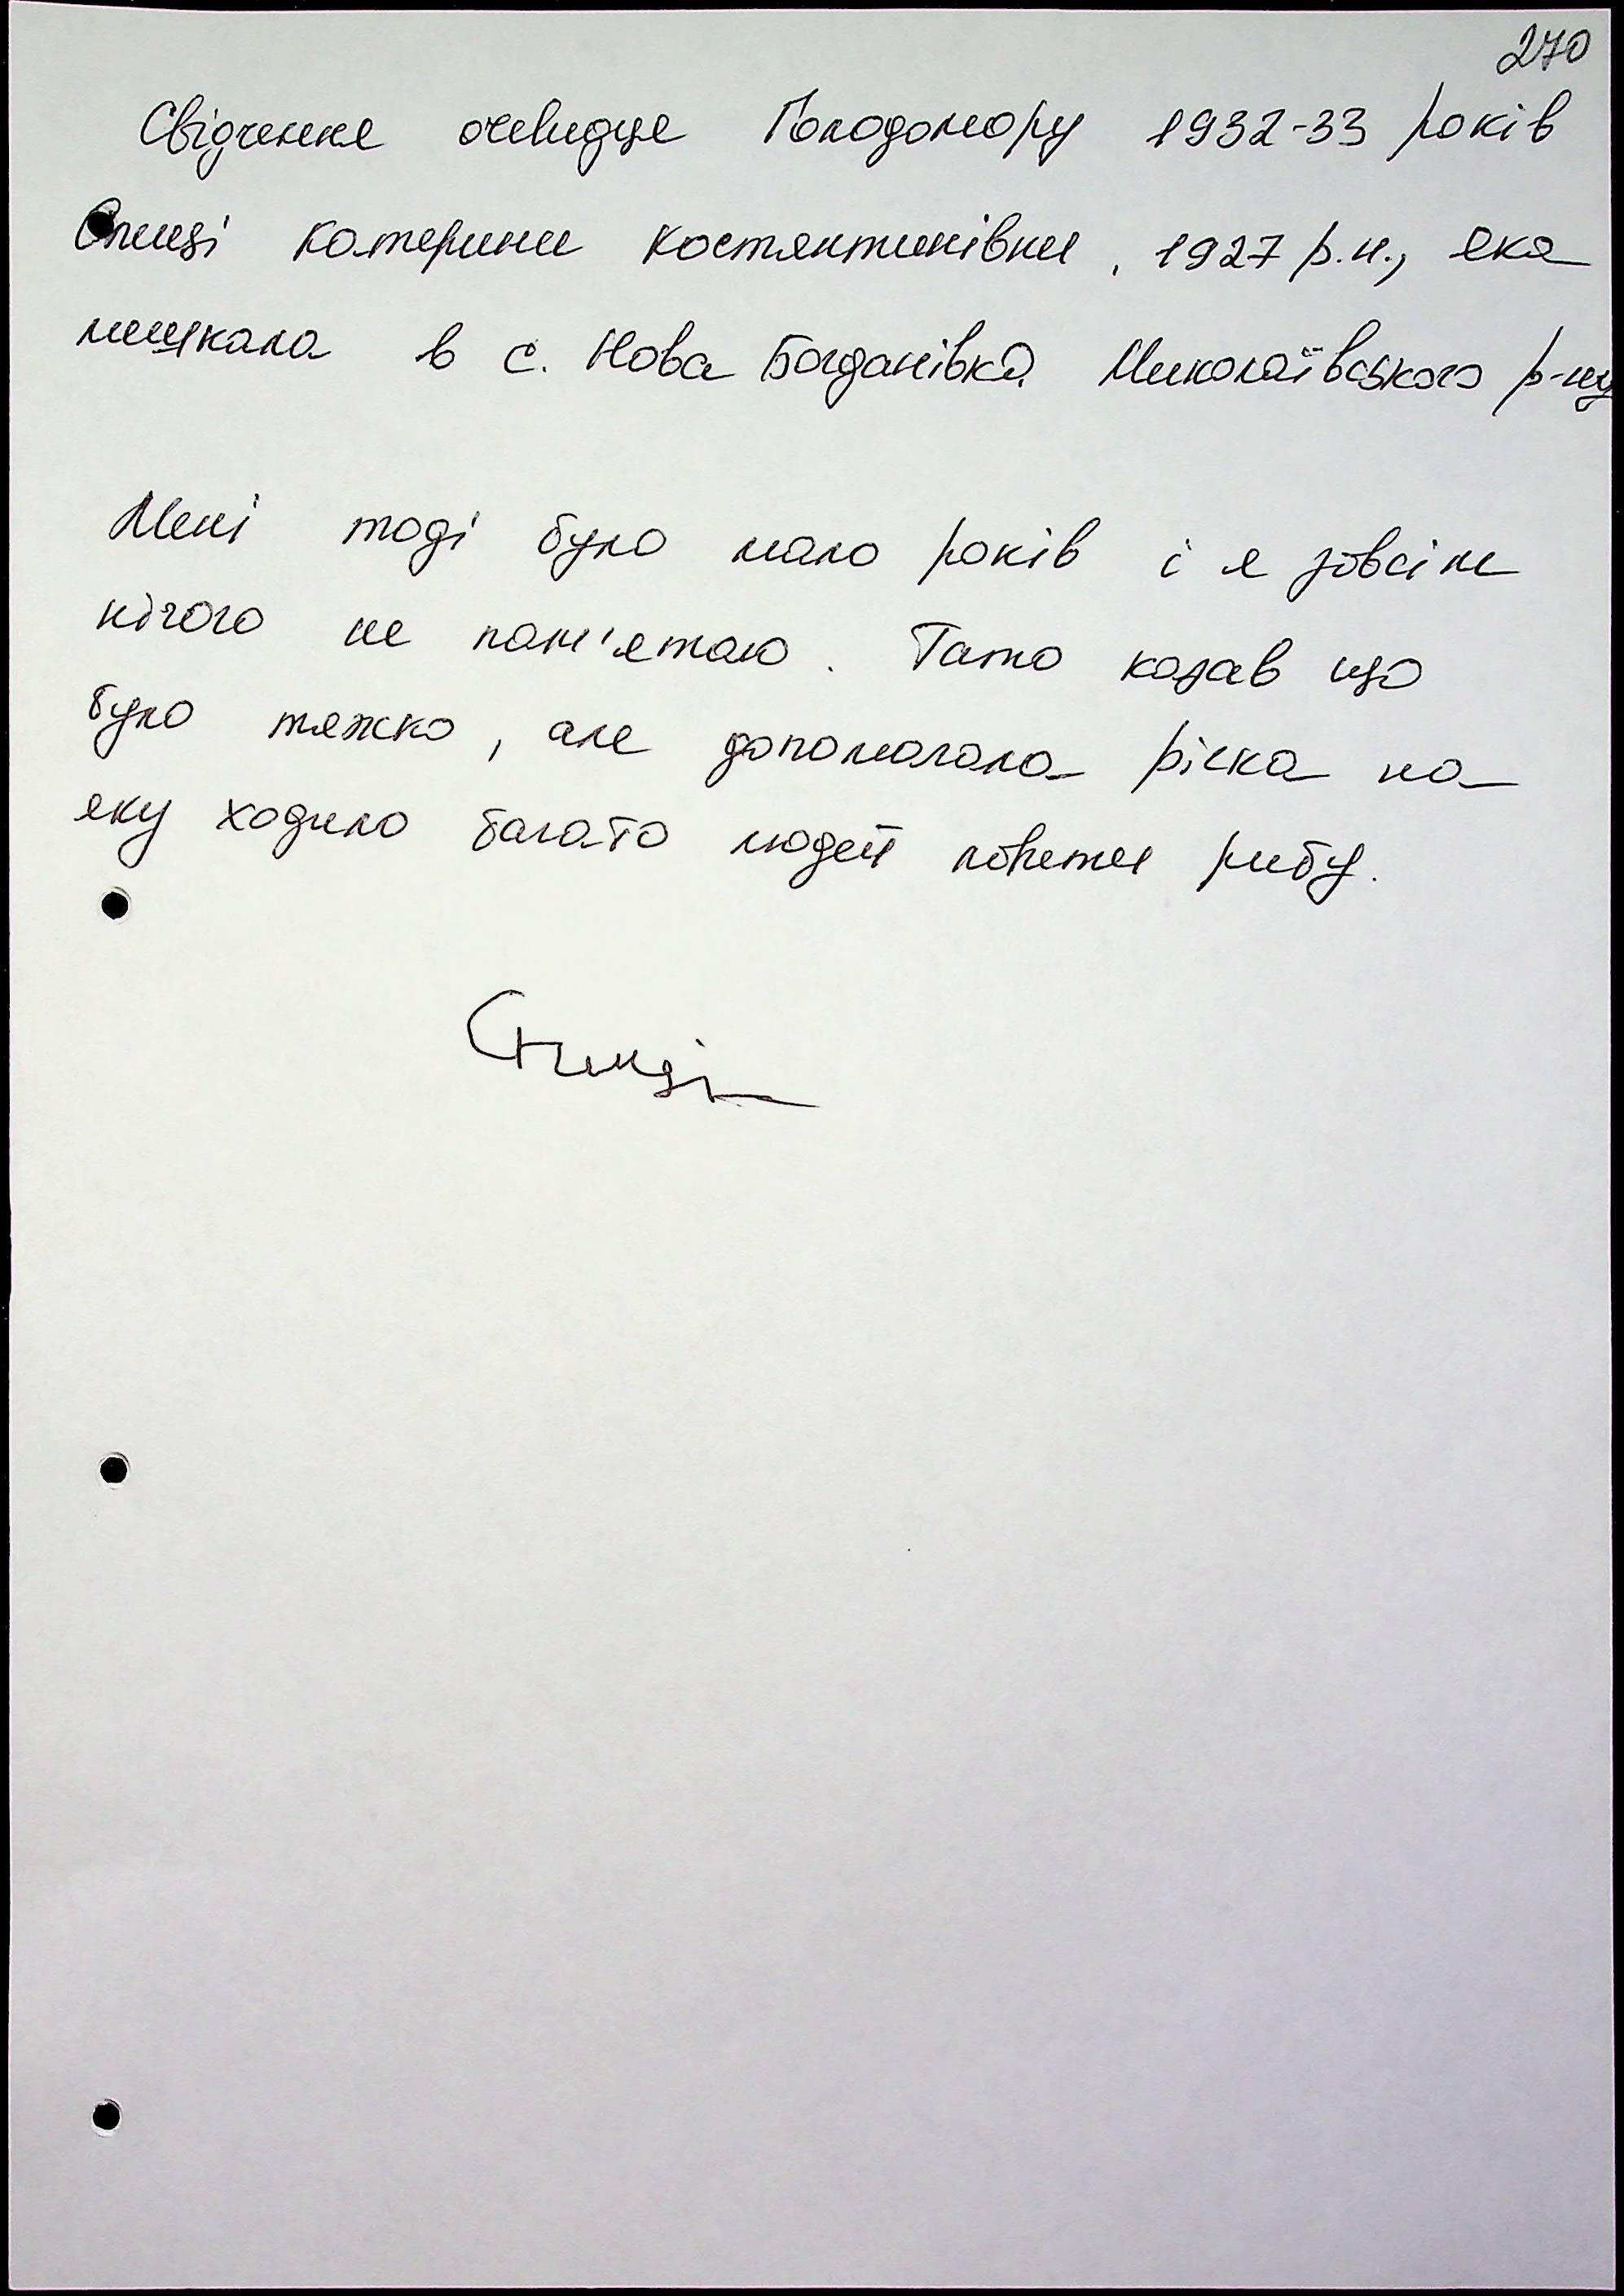 270
Свідчення очевидця Голодомору 1932-33 років
Спиці Катерини Костянтинівни, 1927 р.н., яка
мешкала в с. Нова Богданівка Миколаївського р-ну
Мені тоді було мало років і я зовсім
нічого не пам'ятаю. Тато казав що
було тяжко, але допомогала річка на
яку ходило багато людей ловити рибу.